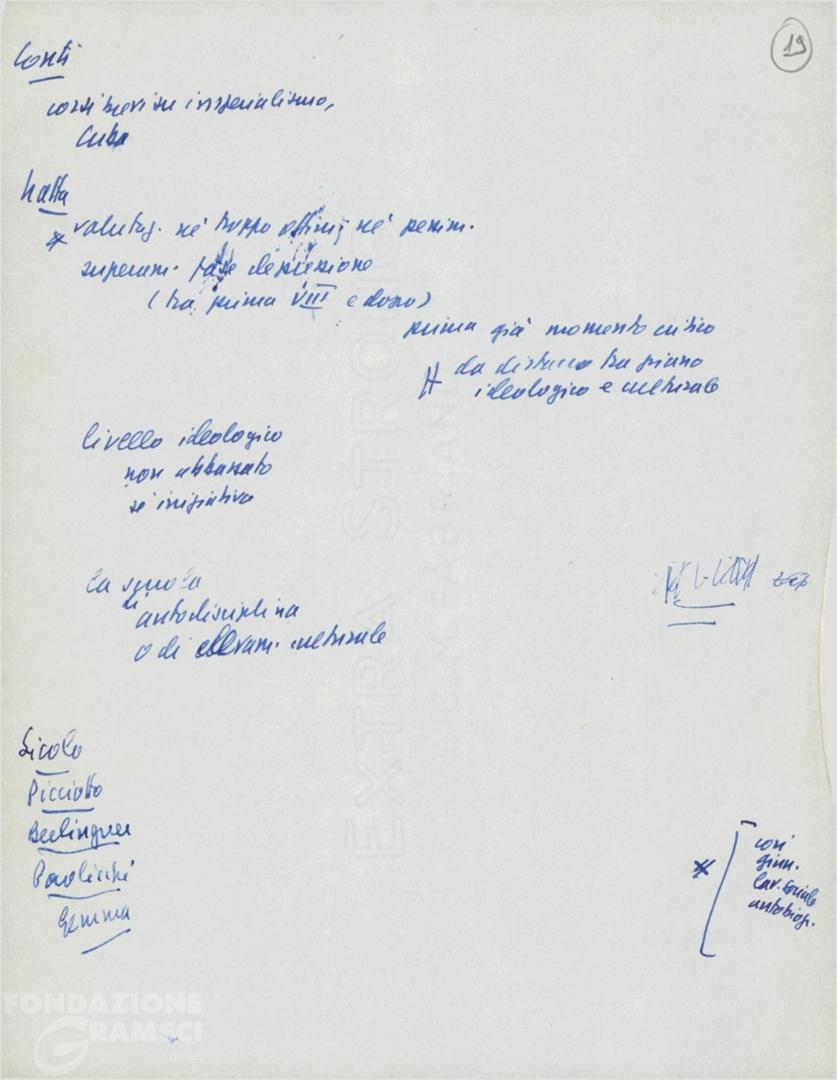 19
Conti
corsi brevi su imperialismo,
Cuba
Natta
* valutaz. né troppo ottim. né pessim.
superam. fase depressione
(tra prima VIII e dopo)
prima già momento critico
da distacco tra piano
ideologico e culturale
livello ideologico
non abbassato
sì iniziativa
la scuola
di autodisciplina
o di allevam. culturale
Sicolo
Picciotto
Berlinguer
Paolicchi
Gemma
* così
giun.
lav. sociale
autobiogr.
EXTRA STRONG
FONDAZIONE
GRAMSCI
onlus